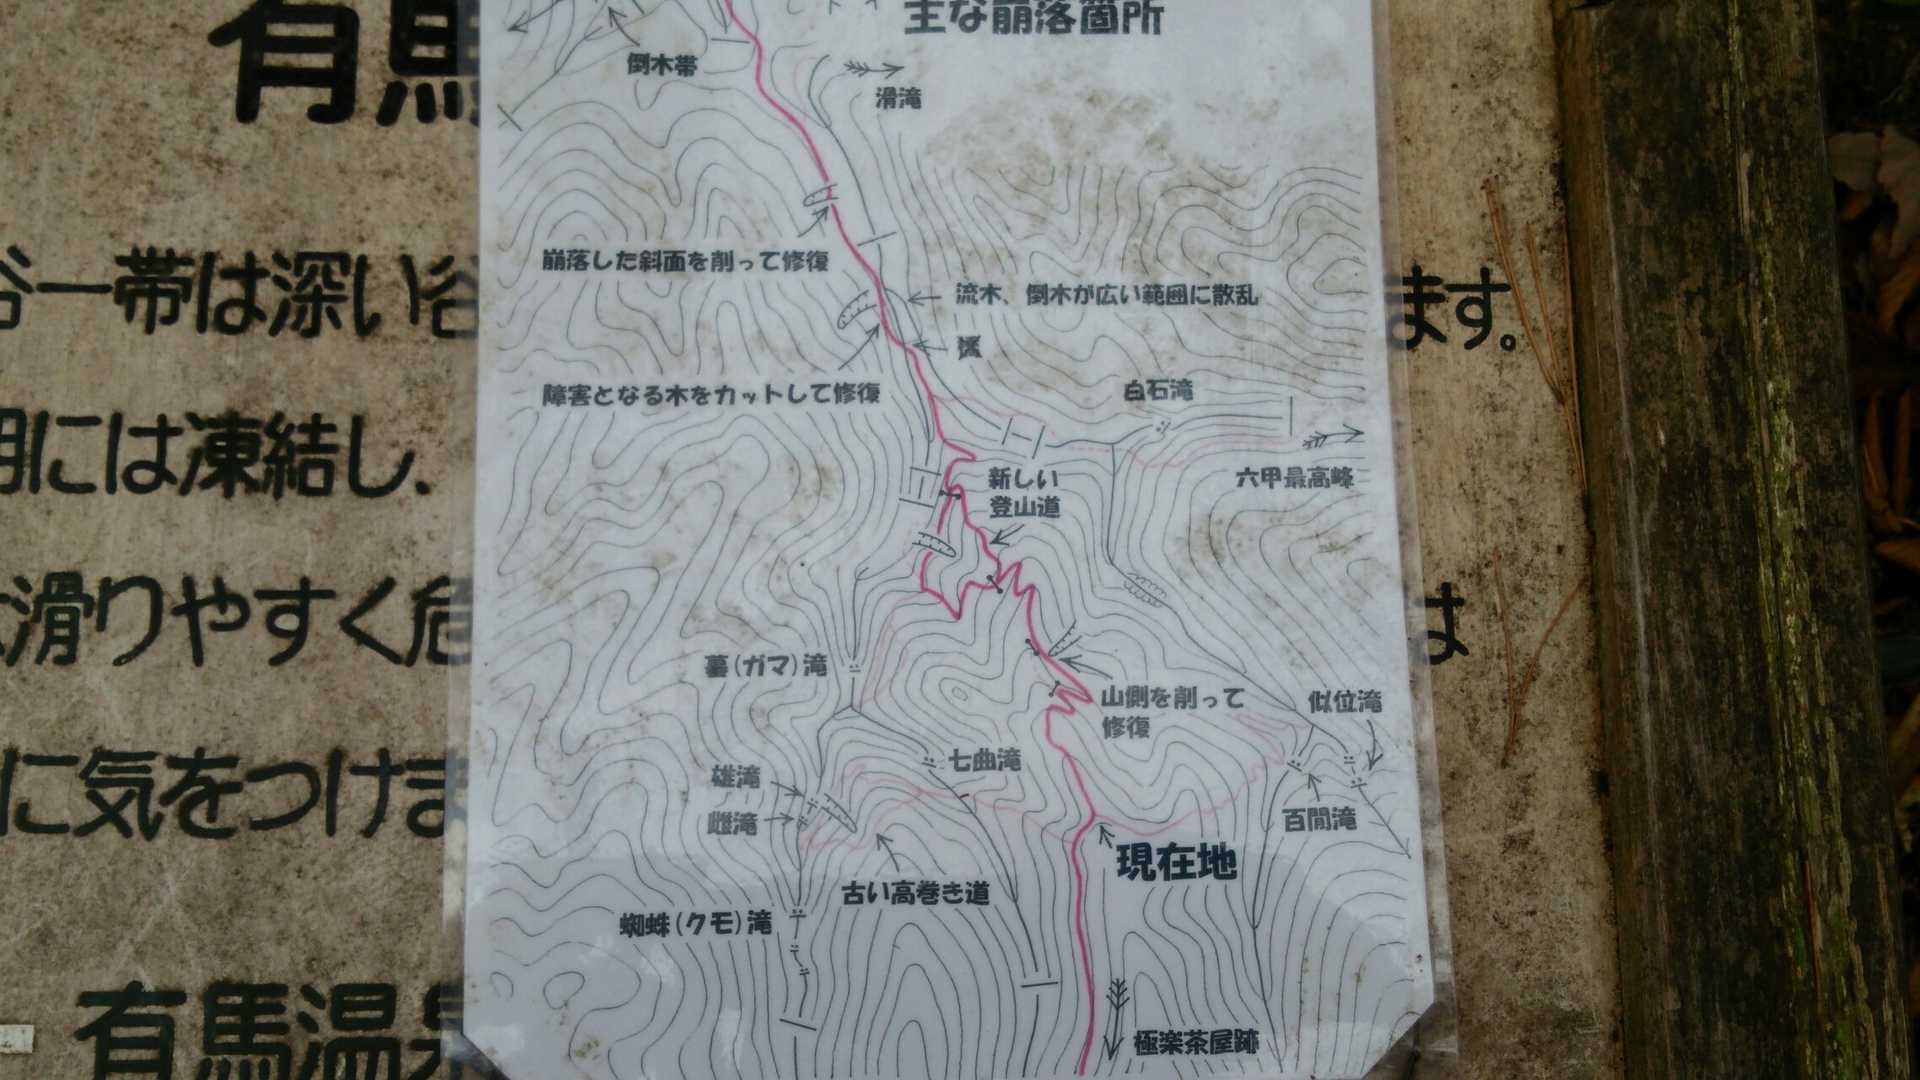 有馬
主な崩落箇所
倒木帯
滑滝
谷一帯は深い谷
ます。
崩落した斜面を削って修復
流木、倒木が広い範囲に散乱
障害となる木をカットして修復
白石滝
六甲最高峰
には凍結し.
新しい
登山道
滑りやすく危
は
蟇(ガマ)滝
山側を削って
修復
似位滝
七曲滝
に気をつけま
雄滝
雌滝
百間滝
現在地
古い高巻き道
蜘蛛(クモ)滝
有馬温泉
極楽茶屋跡